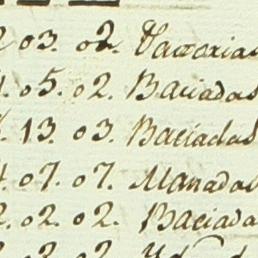 03. 02. Vacarias
05. 02. Baciadas
13. 03. Baciadas
07. 07. Manadas
2. 02. 02. Baciada